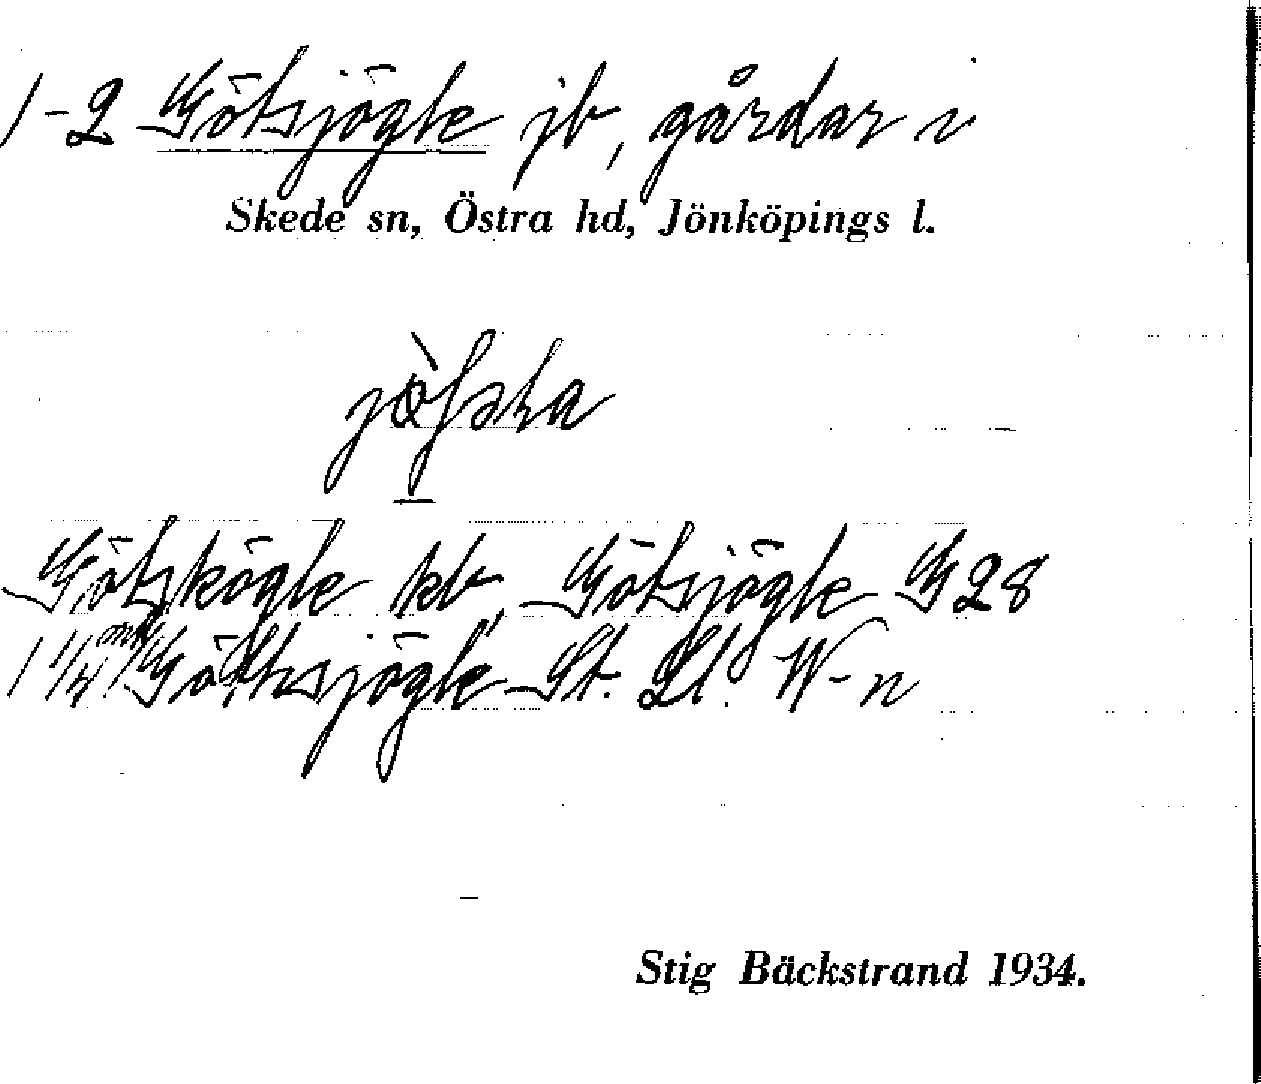 1-2 Götsjögle jb, gårdar i
Skede sn, Östra hd, Jönköpings l.
Götskögle kb, Götsjögle G28
1 1/4 mtl Göthsjögle St. Lt. W-n
Stig Bäckstrand 1934.